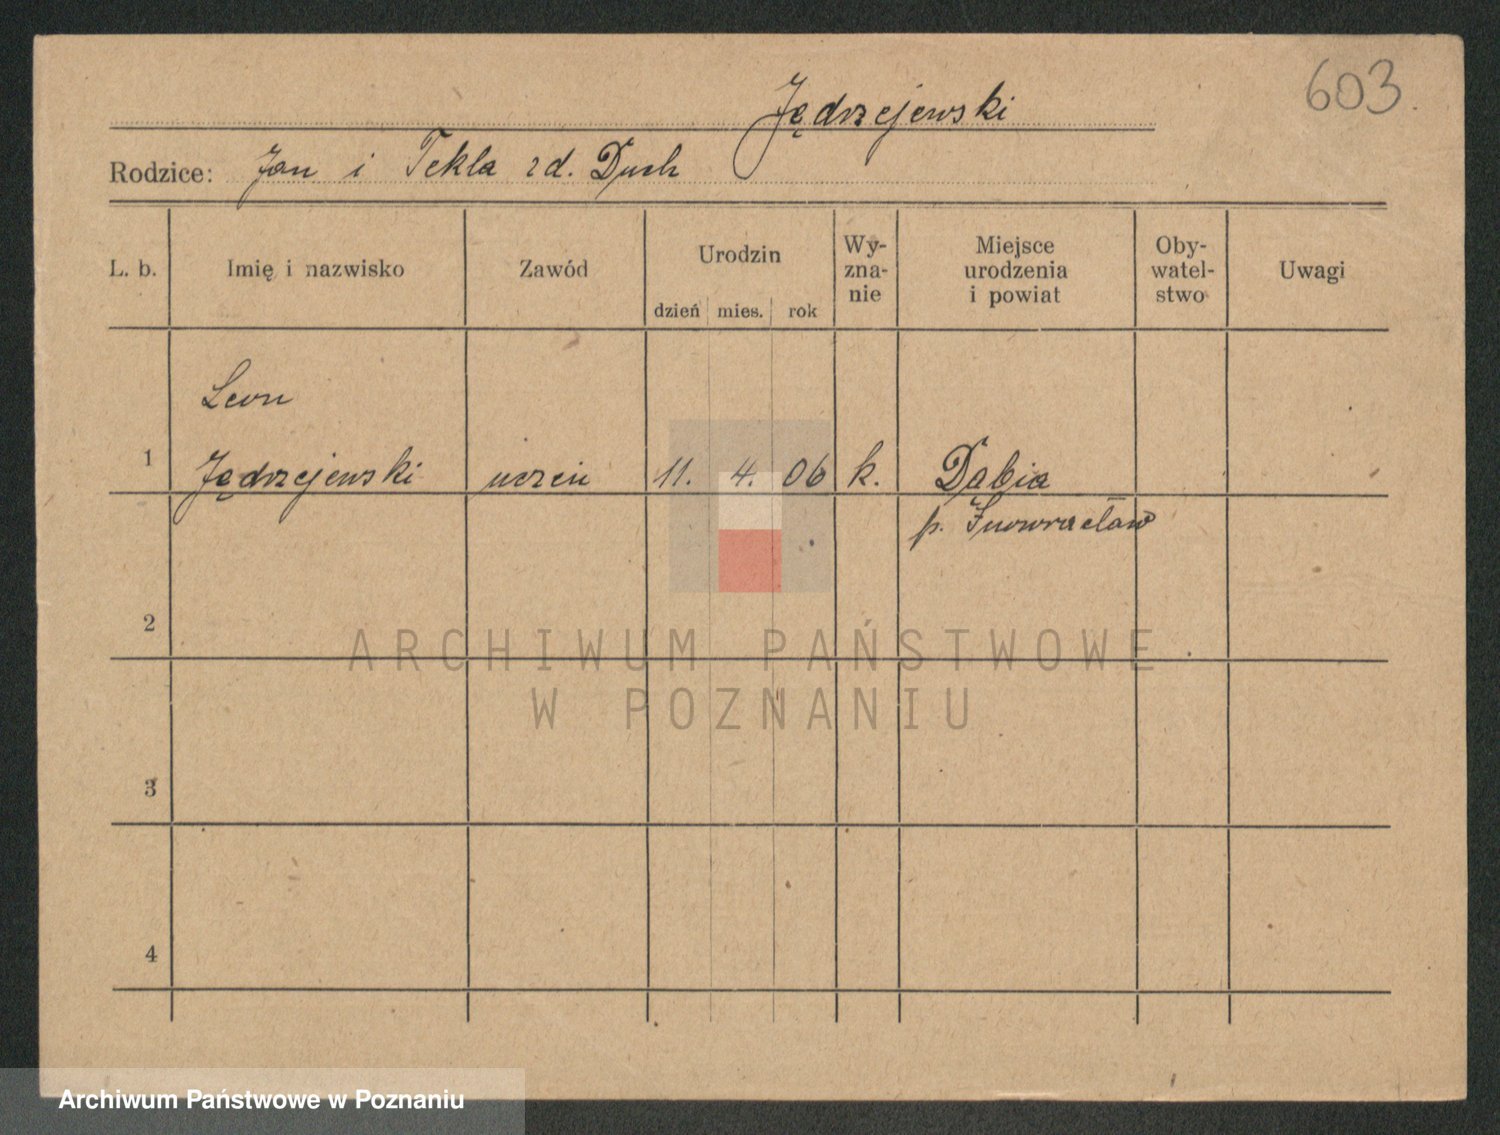 603
Jędrzejewski
Rodzice: Jan i Tekla zd. Duch
L. b. Imię i nazwisko Zawód Urodzin Wy-zna-nie Miejsce urodzenia i powiat Oby-watel-stwo Uwagi
dzień mies. rok
Leon
1 Jędrzejewski uczeń 11. 4. 06 k. Dąbia
p. Inowrocław
2
ARCHIWUM PAŃSTWOWE
W POZNANIU
3
4
Archiwum Państwowe w Poznaniu